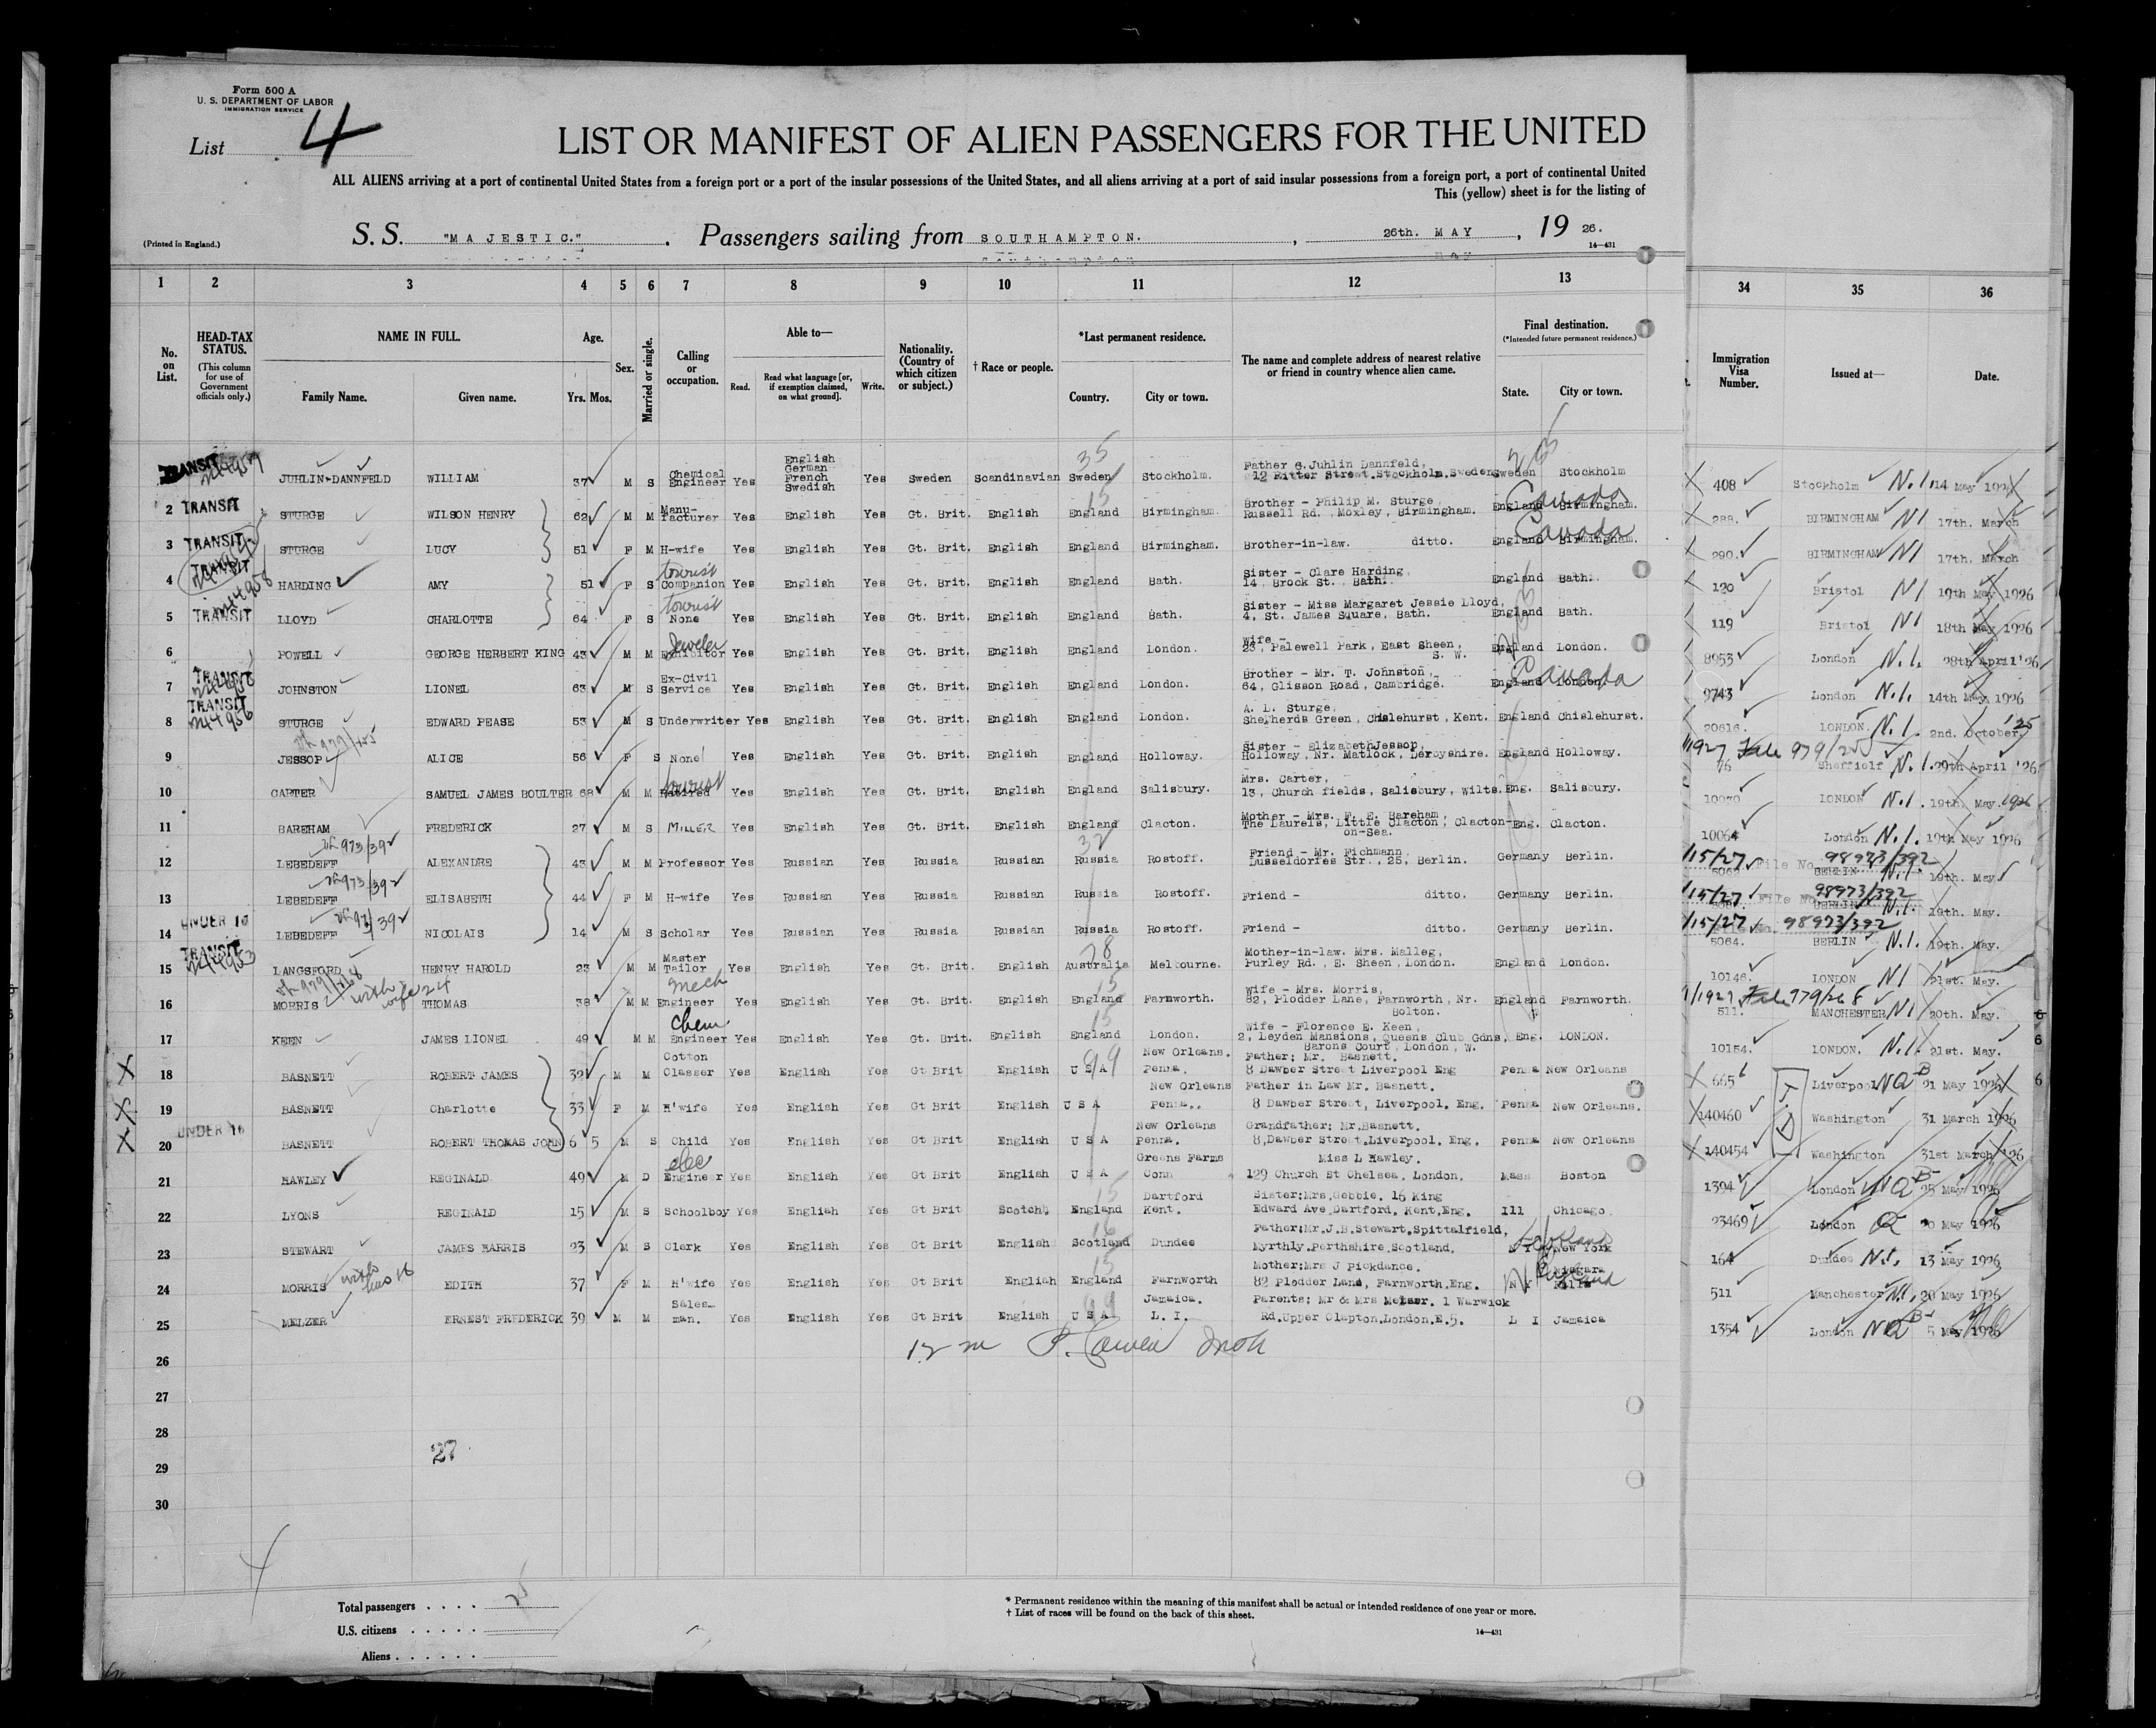 Form 500 A
U. S. DEPARTMENT OF LABOR
IMMIGRATION SERVICE
List 4
LIST OR MANIFEST OF ALIEN PASSENGERS FOR THE UNITED
ALL ALIENS arriving at a port of continental United States from a foreign port or a port of the insular possessions of the United States, and all aliens arriving at a port of said insular possessions from a foreign port, a port of continental United
This (yellow) sheet is for the listing of
(Printed in England.) S. S. "MAJESTIC." Passengers sailing from SOUTHAMPTON. , 26th. MAY , 19 26.
14—431
1 2 3 4 5 6 7 8 9 10 11 12 13 34 35 36
No. on List. HEAD-TAX STATUS. (This column for use of Government officials only.) NAME IN FULL. Family Name. Given name. Age. Yrs. Mos. Sex. Married or single. Calling or occupation. Able to— Read. Read what language [or, if exemption claimed, on what ground]. Write. Nationality. (Country of which citizen or subject.) † Race or people. *Last permanent residence. Country. City or town. The name and complete address of nearest relative or friend in country whence alien came. Final destination. (*Intended future permanent residence.) State. City or town. Immigration Visa Number. Issued at— Date.
TRANSIT JUHLIN-DANNFELD WILLIAM 37 M S Chemical Engineer Yes English German French Swedish Yes Sweden Scandinavian Sweden Stockholm. Father G. Juhlin Dannfeld, 12 Ritter Street. Stockholm, Sweden Sweden Stockholm 408 Stockholm N.I. 14 May 1926
2 TRANSIT STURGE WILSON HENRY 62 M M Manufacturer Yes English Yes Gt. Brit. English England Birmingham. Brother - Philip M. Sturge, Russell Rd., Moxley, Birmingham. England Birmingham. Canada 289. BIRMINGHAM NI 17th. March
3 TRANSIT STURGE LUCY 51 F M H-wife Yes English Yes Gt. Brit. English England Birmingham. Brother-in-law. ditto. England Birmingham. Canada 290. BIRMINGHAM NI 17th. March
4 TRANSIT HARDING AMY 51 F S tourist Companion Yes English Yes Gt. Brit. English England Bath. Sister - Clare Harding, 14, Brock St., Bath. England Bath. 120 Bristol NI 19th May 1926
5 TRANSIT LLOYD CHARLOTTE 64 F S tourist None Yes English Yes Gt. Brit. English England Bath. Sister - Miss Margaret Jessie Lloyd, 4, St. James Square, Bath. England Bath. 119 Bristol NI 18th May 1926
6 POWELL GEORGE HERBERT KING 43 M M Jeweler Exhibitor Yes English Yes Gt. Brit. English England London. Wife - 23, Palewell Park, East Sheen, S. W. England London. 8953 London N.I. 28th April '26
7 TRANSIT JOHNSTON LIONEL 63 M S Ex-Civil Service Yes English Yes Gt. Brit. English England London. Brother - Mr. T. Johnston, 64, Glisson Road, Cambridge. England London. Canada 9743 London N.I. 14th May 1926
8 TRANSIT STURGE EDWARD PEASE 53 M S Underwriter Yes English Yes Gt. Brit. English England London. A. L. Sturge, Shepherds Green, Chislehurst, Kent. England Chislehurst. 20616. LONDON. N.I. 2nd. October '25
9 JESSOP ALICE 56 F S None Yes English Yes Gt. Brit. English England Holloway. Sister - Elizabeth Jessop, Holloway, Nr. Matlock, Derbyshire. England Holloway. 76 N.I. 29th April '26
10 CARTER SAMUEL JAMES BOULTER 68 M M tourist Retired Yes English Yes Gt. Brit. English England Salisbury. Mrs. Carter, 13, Church fields, Salisbury, Wilts. Eng. Salisbury. LONDON N.I. 19th. May. 1926
11 BAREHAM FREDERICK 27 M S MILLER Yes English Yes Gt. Brit. English England Clacton. Mother - Mrs. F. E. Bareham, The Laurels, Little Clacton, Clacton-on-Sea. Eng. Clacton. 10064 London N.I. 19th May 1926
12 LEBEDEFF ALEXANDRE 43 M M Professor Yes Russian Yes Russia Russian Russia Rostoff. Friend - Mr. Fichmann, Dusseldorfes Str., 25, Berlin. Germany Berlin. File No. 98973/392 BERLIN N.I. 19th. May
13 LEBEDEFF ELISABETH 44 F M H-wife Yes Russian Yes Russia Russian Russia Rostoff. Friend - ditto. Germany Berlin. File No. 98973/392 BERLIN N.I. 19th. May.
14 UNDER 16 LEBEDEFF NICOLAIS 14 M S Scholar Yes Russian Yes Russia Russian Russia Rostoff. Friend - ditto. Germany Berlin. 98973/392 5064. BERLIN N.I. 19th. May.
15 TRANSIT LANGSFORD HENRY HAROLD 23 M M Master Tailor Yes English Yes Gt. Brit. English Australia Melbourne. Mother-in-law. Mrs. Malleg, Purley Rd., E. Sheen, London. England London. 10146. LONDON NI 21st. May.
16 MORRIS with wife 24 THOMAS 38 M M mech Engineer Yes English Yes Gt. Brit. English England Farnworth. Wife - Mrs. Morris, 82, Plodder Lane, Farnworth, Nr. Bolton. England Farnworth. 511. MANCHESTER NI 20th. May.
17 KEEN JAMES LIONEL 49 M M chem Engineer Yes English Yes Gt. Brit. English England London. Wife - Florence E. Keen, 2, Leyden Mansions, Queens Club Gdns, Barons Court, London, W. Eng. LONDON. 10154. LONDON. N.I. 21st. May.
X 18 BASNETT ROBERT JAMES 32 M M Cotton Classer Yes English Yes Gt Brit English U S A New Orleans. Penna. Father; Mr. Basnett. 8 Dawber Street Liverpool Eng Penna New Orleans 665 Liverpool 21 May 1926
X 19 BASNETT Charlotte 33 F M H'wife Yes English Yes Gt Brit English U S A New Orleans Penna.. Father in Law Mr. Basnett. 8 Dawber Street, Liverpool. Eng. Penna New Orleans. 140460 Washington 31 March 1926
X 20 UNDER 16 BASNETT ROBERT THOMAS JOHN 6 5 M S Child Yes English Yes Gt Brit English U S A New Orleans Penna. Grandfather; Mr. Basnett. 8, Dawber Street. Liverpool, Eng. Penna New Orleans 140454 Washington 31st March '26
21 HAWLEY REGINALD 49 M D elec Engineer Yes English Yes Gt Brit English U S A Greens Farms Conn Miss L Hawley. 129 Church St Chelsea, London. Mass Boston 1394 London 25 May 1926
22 LYONS REGINALD 15 M S Schoolboy Yes English Yes Gt Brit Scotch England Dartford Kent. Sister; Mrs. Gebbie. 16 King Edward Ave, Dartford. Kent, Eng. Ill Chicago. 23469 London 20 May 1926
23 STEWART JAMES HARRIS 23 M S Clerk Yes English Yes Gt Brit English Scotland Dundee Father; Mr. J. B. Stewart, Spittalfield, Myrthly. Perthshire, Scotland. N Y New York Scotland 164 Dundee N.I. 13 May 1926
24 MORRIS EDITH 37 F M H'wife Yes English Yes Gt Brit English England Farnworth Mother; Mrs J Pickdance. 82 Plodder Lane, Farnworth, Eng. N Y Niagara Falls England 511 Manchester N.I. 20 May 1926
25 MELZER ERNEST FREDERICK 39 M M Salesman. Yes English Yes Gt Brit English U S A Jamaica. L. I. Parents; Mr & Mrs Melzer. 1 Warwick Rd. Upper Clapton, London, E.5. L I Jamaica 1354 London 5 May 1926
26
27
28
27
29
30
Total passengers . . . . 25
U.S. citizens . . . . .
Aliens . . . . . .
* Permanent residence within the meaning of this manifest shall be actual or intended residence of one year or more.
† List of races will be found on the back of this sheet.
14—431